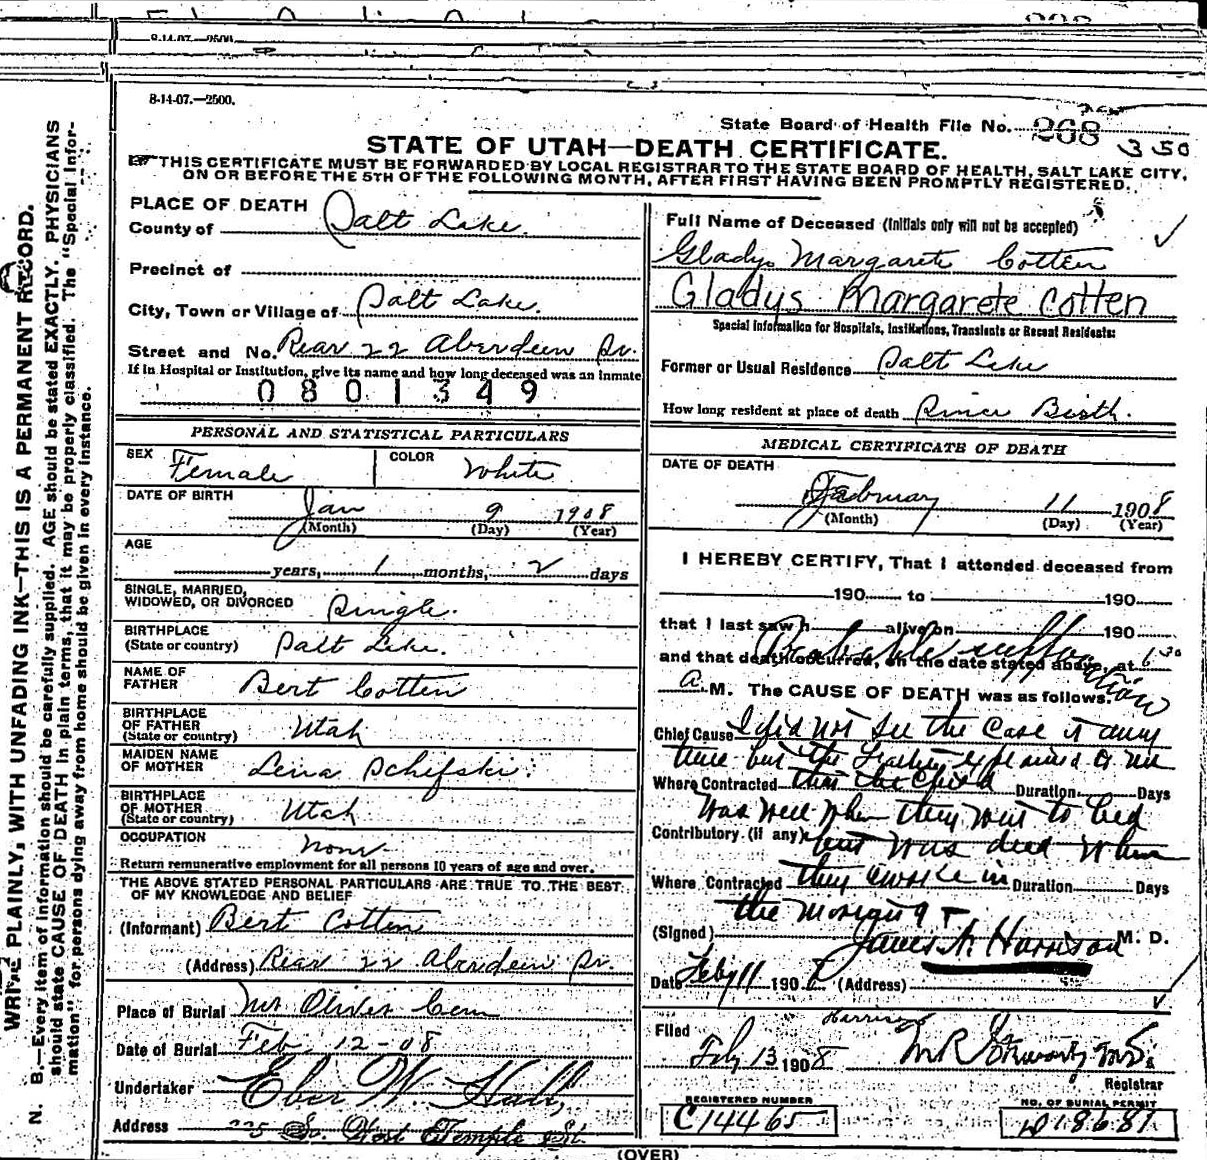 8-14-07.—2500.
8-14-07.—2500.
State Board of Health File No. 268
350
STATE OF UTAH—DEATH CERTIFICATE.
THIS CERTIFICATE MUST BE FORWARDED BY LOCAL REGISTRAR TO THE STATE BOARD OF HEALTH, SALT LAKE CITY,
ON OR BEFORE THE 5TH OF THE FOLLOWING MONTH, AFTER FIRST HAVING BEEN PROMPTLY REGISTERED.
WRITE PLAINLY, WITH UNFADING INK—THIS IS A PERMANENT RECORD.
N. B.—Every item of information should be carefully supplied. AGE should be stated EXACTLY. PHYSICIANS
should state CAUSE OF DEATH in plain terms, that it may be properly classified. The "Special Infor-
mation" for persons dying away from home should be given in every instance.
PLACE OF DEATH
County of Salt Lake.
Precinct of
City, Town or Village of Salt Lake.
Street and No. Rear 22 Aberdeen Sr.
If in Hospital or Institution, give its name and how long deceased was an inmate
0801349
PERSONAL AND STATISTICAL PARTICULARS
SEX Female COLOR White
DATE OF BIRTH Jan 9 1908
(Month) (Day) (Year)
AGE
years, 1 months, 2 days
SINGLE, MARRIED,
WIDOWED, OR DIVORCED Single.
BIRTHPLACE
(State or country) Salt Lake.
NAME OF
FATHER Bert Cotten
BIRTHPLACE
OF FATHER
(State or country) Utah
MAIDEN NAME
OF MOTHER Lena Schefski.
BIRTHPLACE
OF MOTHER
(State or country) Utah
OCCUPATION None
Return remunerative employment for all persons 10 years of age and over.
THE ABOVE STATED PERSONAL PARTICULARS ARE TRUE TO THE BEST
OF MY KNOWLEDGE AND BELIEF
(Informant) Bert Cotten
(Address) Rear 22 Aberdeen Sr.
Place of Burial Mt Oliver Cem
Date of Burial Feb. 12-08
Undertaker Eber W. Hall,
Address 225 So. West Temple St.
Full Name of Deceased (Initials only will not be accepted)
Gladys Margarete Cotten
Gladys Margarete Cotten
Special Information for Hospitals, Institutions, Transients or Recent Residents:
Former or Usual Residence Salt Lake
How long resident at place of death Since Birth.
MEDICAL CERTIFICATE OF DEATH
DATE OF DEATH
February 11 1908
(Month) (Day) (Year)
I HEREBY CERTIFY, That I attended deceased from
190 to 190
that I last saw h alive on 190
Probable suffocation
and that death occurred, on the date stated above, at 6 30
a. M. The CAUSE OF DEATH was as follows.
Chief Cause I did not see the case at any
time but the
Where Contracted that the child Duration Days
was well when they went to bed
Contributory (if any) but was dead when
Where Contracted they awoke in Duration Days
the morning
(Signed) James A. Harrison M. D.
Date Feby 11 190 (Address)
Harrison
Filed Feby 13 1908 M R Stewart M.D.
Registrar
REGISTERED NUMBER
C14465
NO. OF BURIAL PERMIT
D18681
(OVER)